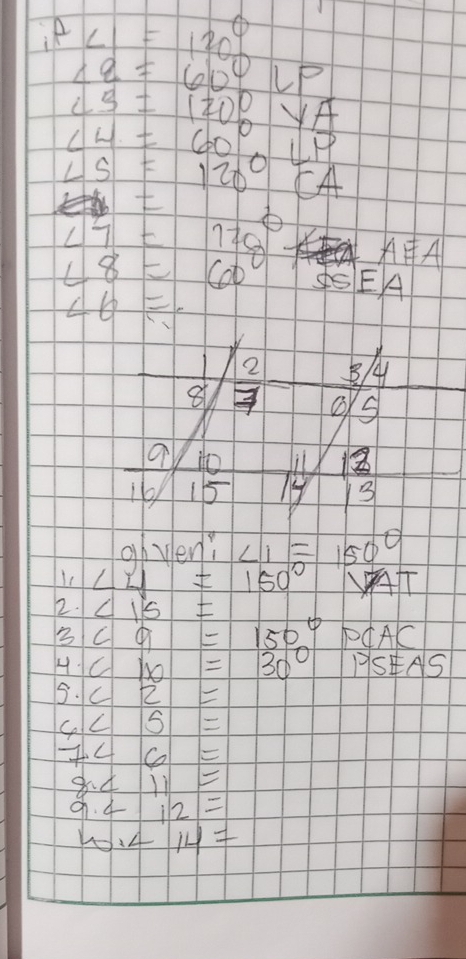 iP <1 = 120°
<2 = 60° LP
<3 = 120° VA
<4 = 60° LP
<5 = 120° CA
=
<7 = 128° AEA
<8 = 60° SSEA
<6 =
1 2 3 4
8 7 6 5
9 10 11 12
16 15 14 13
given: <1 = 150°
1. < 4 = 150° VAT
2. < 15 =
3 < 9 = 150° PCAC
4. < 10 = 30° PSEAS
5. < 2 =
6 < 5 =
7 < 6 =
8. < 11 =
9. < 12 =
10. < 14 =